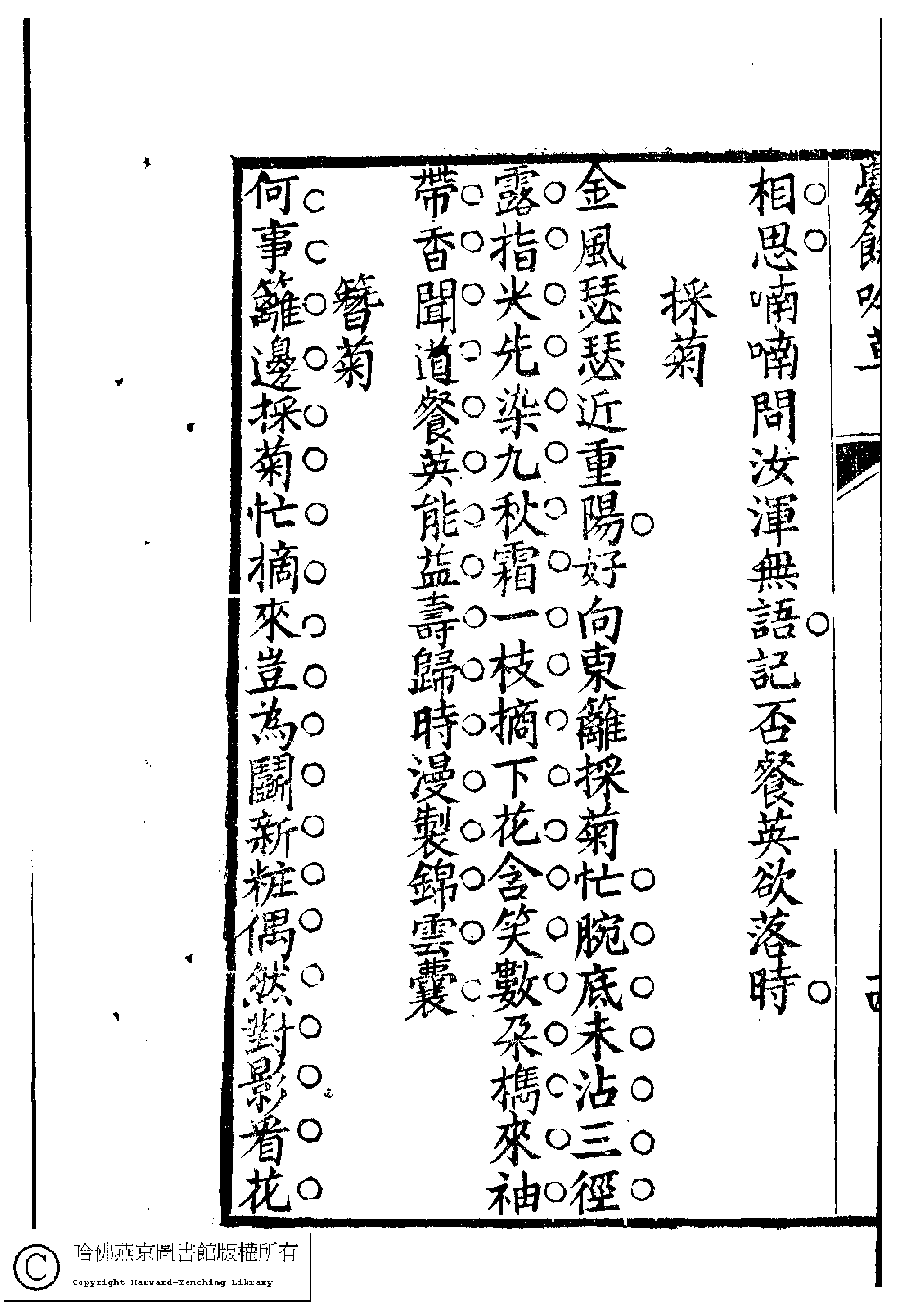 相思喃喃問汝渾無語記否餐英欲落時
採菊
金風瑟瑟近重陽好向東籬採菊忙腕底未沾三徑
露指尖先染九秋霜一枝摘下花含笑數朶擕來袖
帶香聞道餐英能益壽歸時漫製錦雲囊
簪菊
何事籬邊採菊忙摘來豈為鬭新粧偶然對影看花
哈佛燕京圖書館版權所有
Copyright Harvard-Yenching Library